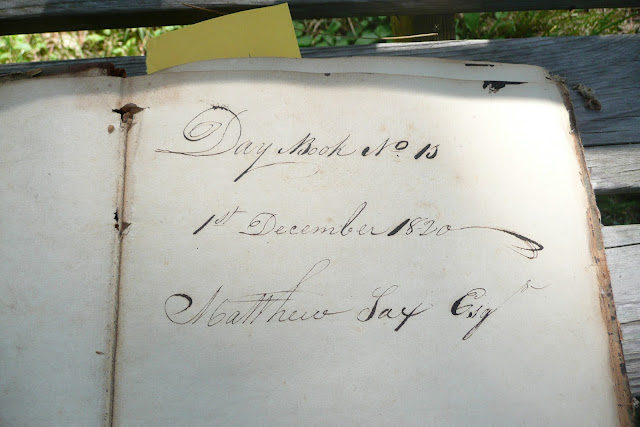 Day Book No 13
1st December 1820
Matthew Sax Esqr